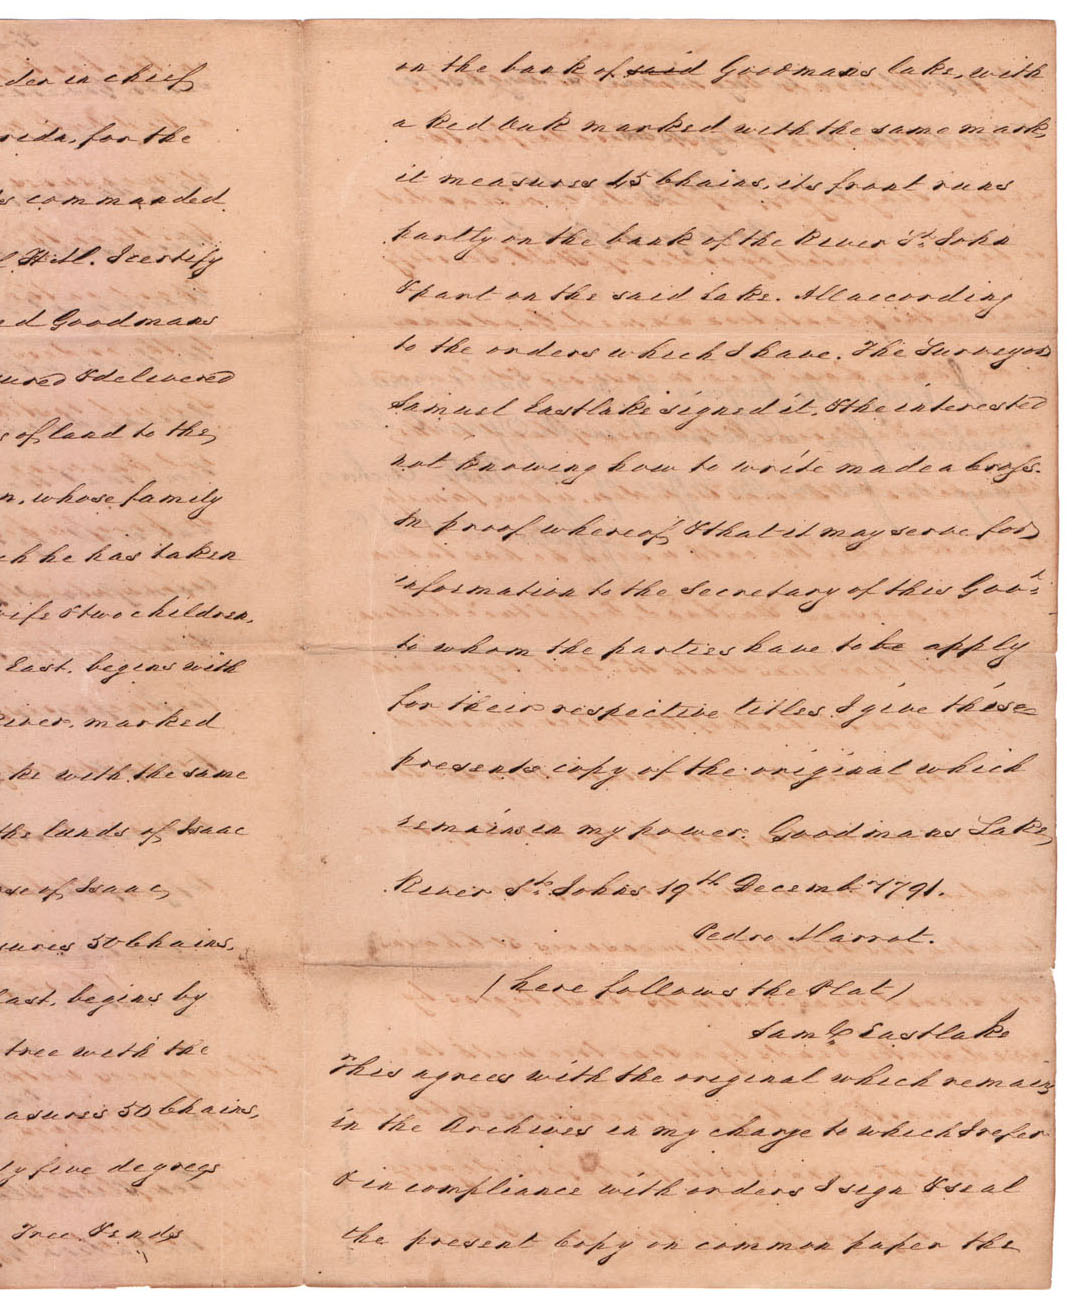 der in chief
rida, for the
s commanded
l Hill. I certify
nd Goodmans
sured & delivered
s of land to the
n, whose family
ch he has taken
wife & two children,
East, begins with
River, marked
ke with the same
the lands of Isaac
se of Isaac,
sures 50 Chains,
East, begins by
tree with the
asures 50 Chains,
ty five degrees
Tree & ends
on the bank of said Goodmans lake, with
a Red Oak marked with the same mark,
it measures 45 Chains, its front runs
partly on the bank of the River St. John
& part on the said Lake. All according
to the orders which I have. The Surveyor
Samuel Eastlake signed it, & the interested
not knowing how to write made a Cross.
In proof whereof, & that it may serve for
information to the Secretary of this Govt.
to whom the parties have to be apply
for their respective titles I give these
presents copy of the original which
remains in my power. Goodmans Lake,
River St. Johns 19th Decembr 1791.
Pedro Marrot.
(here follows the Plat)
Saml. Eastlake
This agrees with the original which remains
in the Archives in my charge to which I refer
& in compliance with orders I sign & seal
the present Copy on common paper the